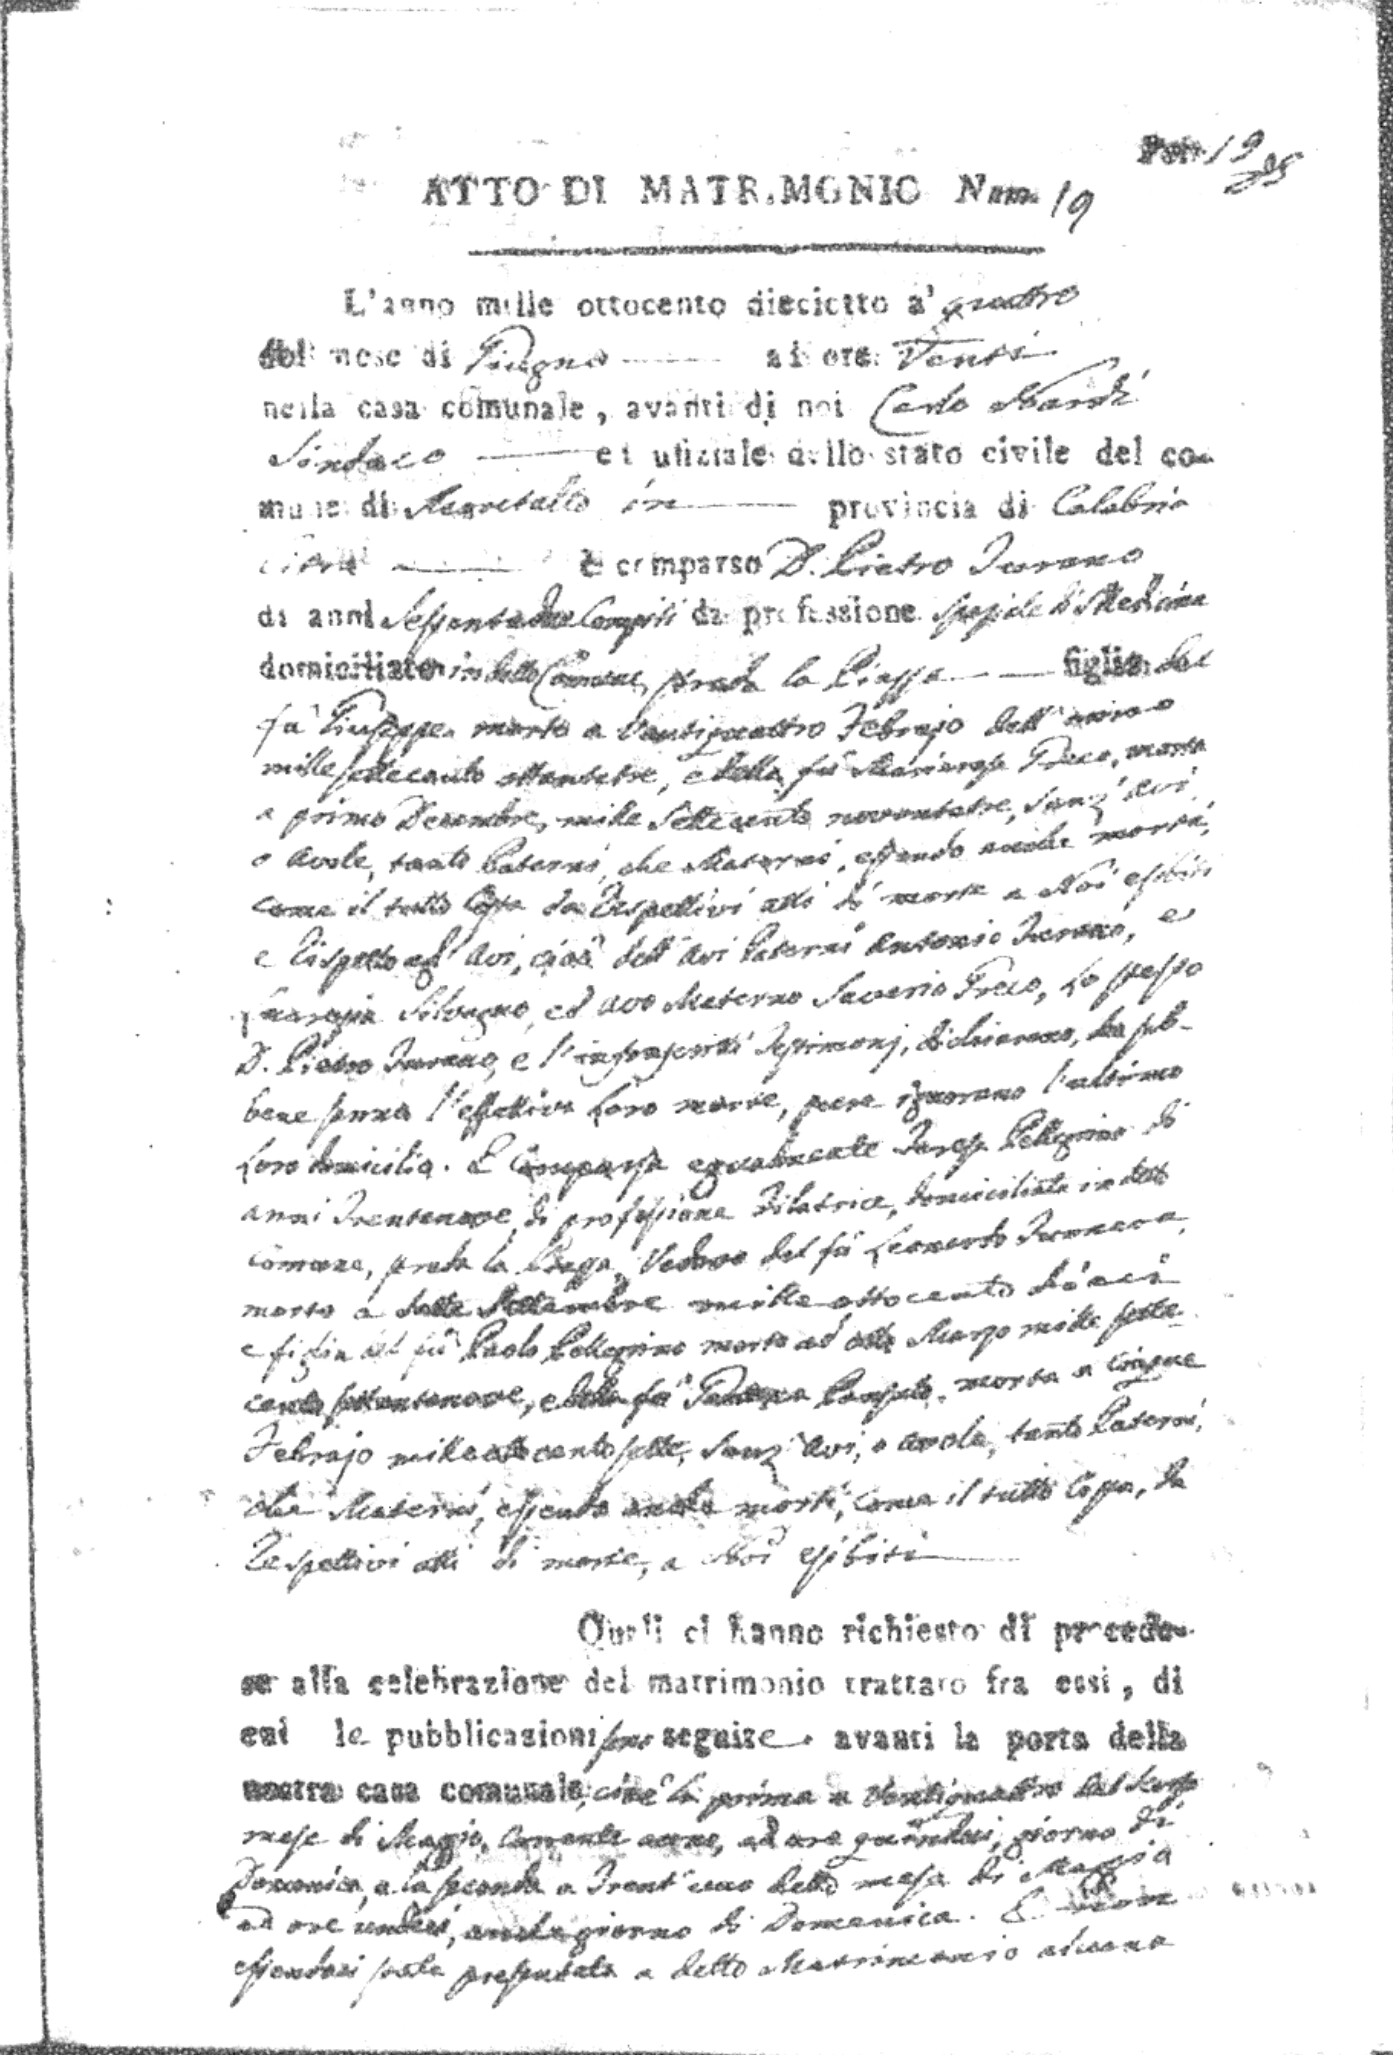 Fol. 19
ATTO DI MATRIMONIO Num. 19
L'anno mille ottocento dieciotto a' quattro
del mese di Giugno ad ore Venti
nella casa comunale, avanti di noi Carlo Nardi
Sindaco ed ufiziale dello stato civile del co-
mune di in provincia di Calabria
Citra è comparso D. Pietro Turano
di anni Sessantadue Compiti di professione speziale di Medicina
domiciliato in detto Comune, strada la Piazza figlio del
fù Giuseppe morto a Ventiquattro Febrajo dell'anno
mille settecento ottantatre, e della fù Mariarosa Greco, morta
a primo Decembre, mille settecento novantatre, senz'avi
o avole, tanto Paterni, che Materni, essendo anche morti,
come il tutto Costa da respettivi atti di morte a Noi esibiti
e rispetto agl'avi, cioè dell'avi Paterni Antonio Turano, e
Silvagno, ed avo Materno Saverio Greco, Lo stesso
D. Pietro Turano, e l'infrascritti Testimonj, dichiarano, che seb-
bene sanno l'effettiva Loro morte, pure ignorano l'ultimo
Loro domicilio. E Comparsa egualmente Teresa Pellegrino di
anni Trentanove di professione Filatrice, domiciliata in detto
Comune, strada la Vedova del fù Leonardo
morto a Sette Settembre mille ottocento dieci
e figlia del fù Paolo Pellegrino morto ad otto Marzo mille sette-
cento settantanove, e della fù morta a Cinque
Febrajo mille ottocento sette, senz'avi, o avole, tanto Paterni,
che Materni, essendo anche morti, come il tutto Costa, da
respettivi atti di morte, a Noi esibiti
Quali ci hanno richiesto di procede-
re alla celebrazione del matrimonio trattato fra essi, di
cui le pubblicazioni sono seguite avanti la porta della
nostra casa comunale, cioè la prima a Ventiquattro del scorso
mese di Maggio, Corrente anno, ad ore quindici, giorno di
Domenica, e la seconda a Trent'uno detto mese di Maggio
ad ore undici, anche giorno di Domenica. E non
essendosi stata presentata a detto Matrimonio alcuna